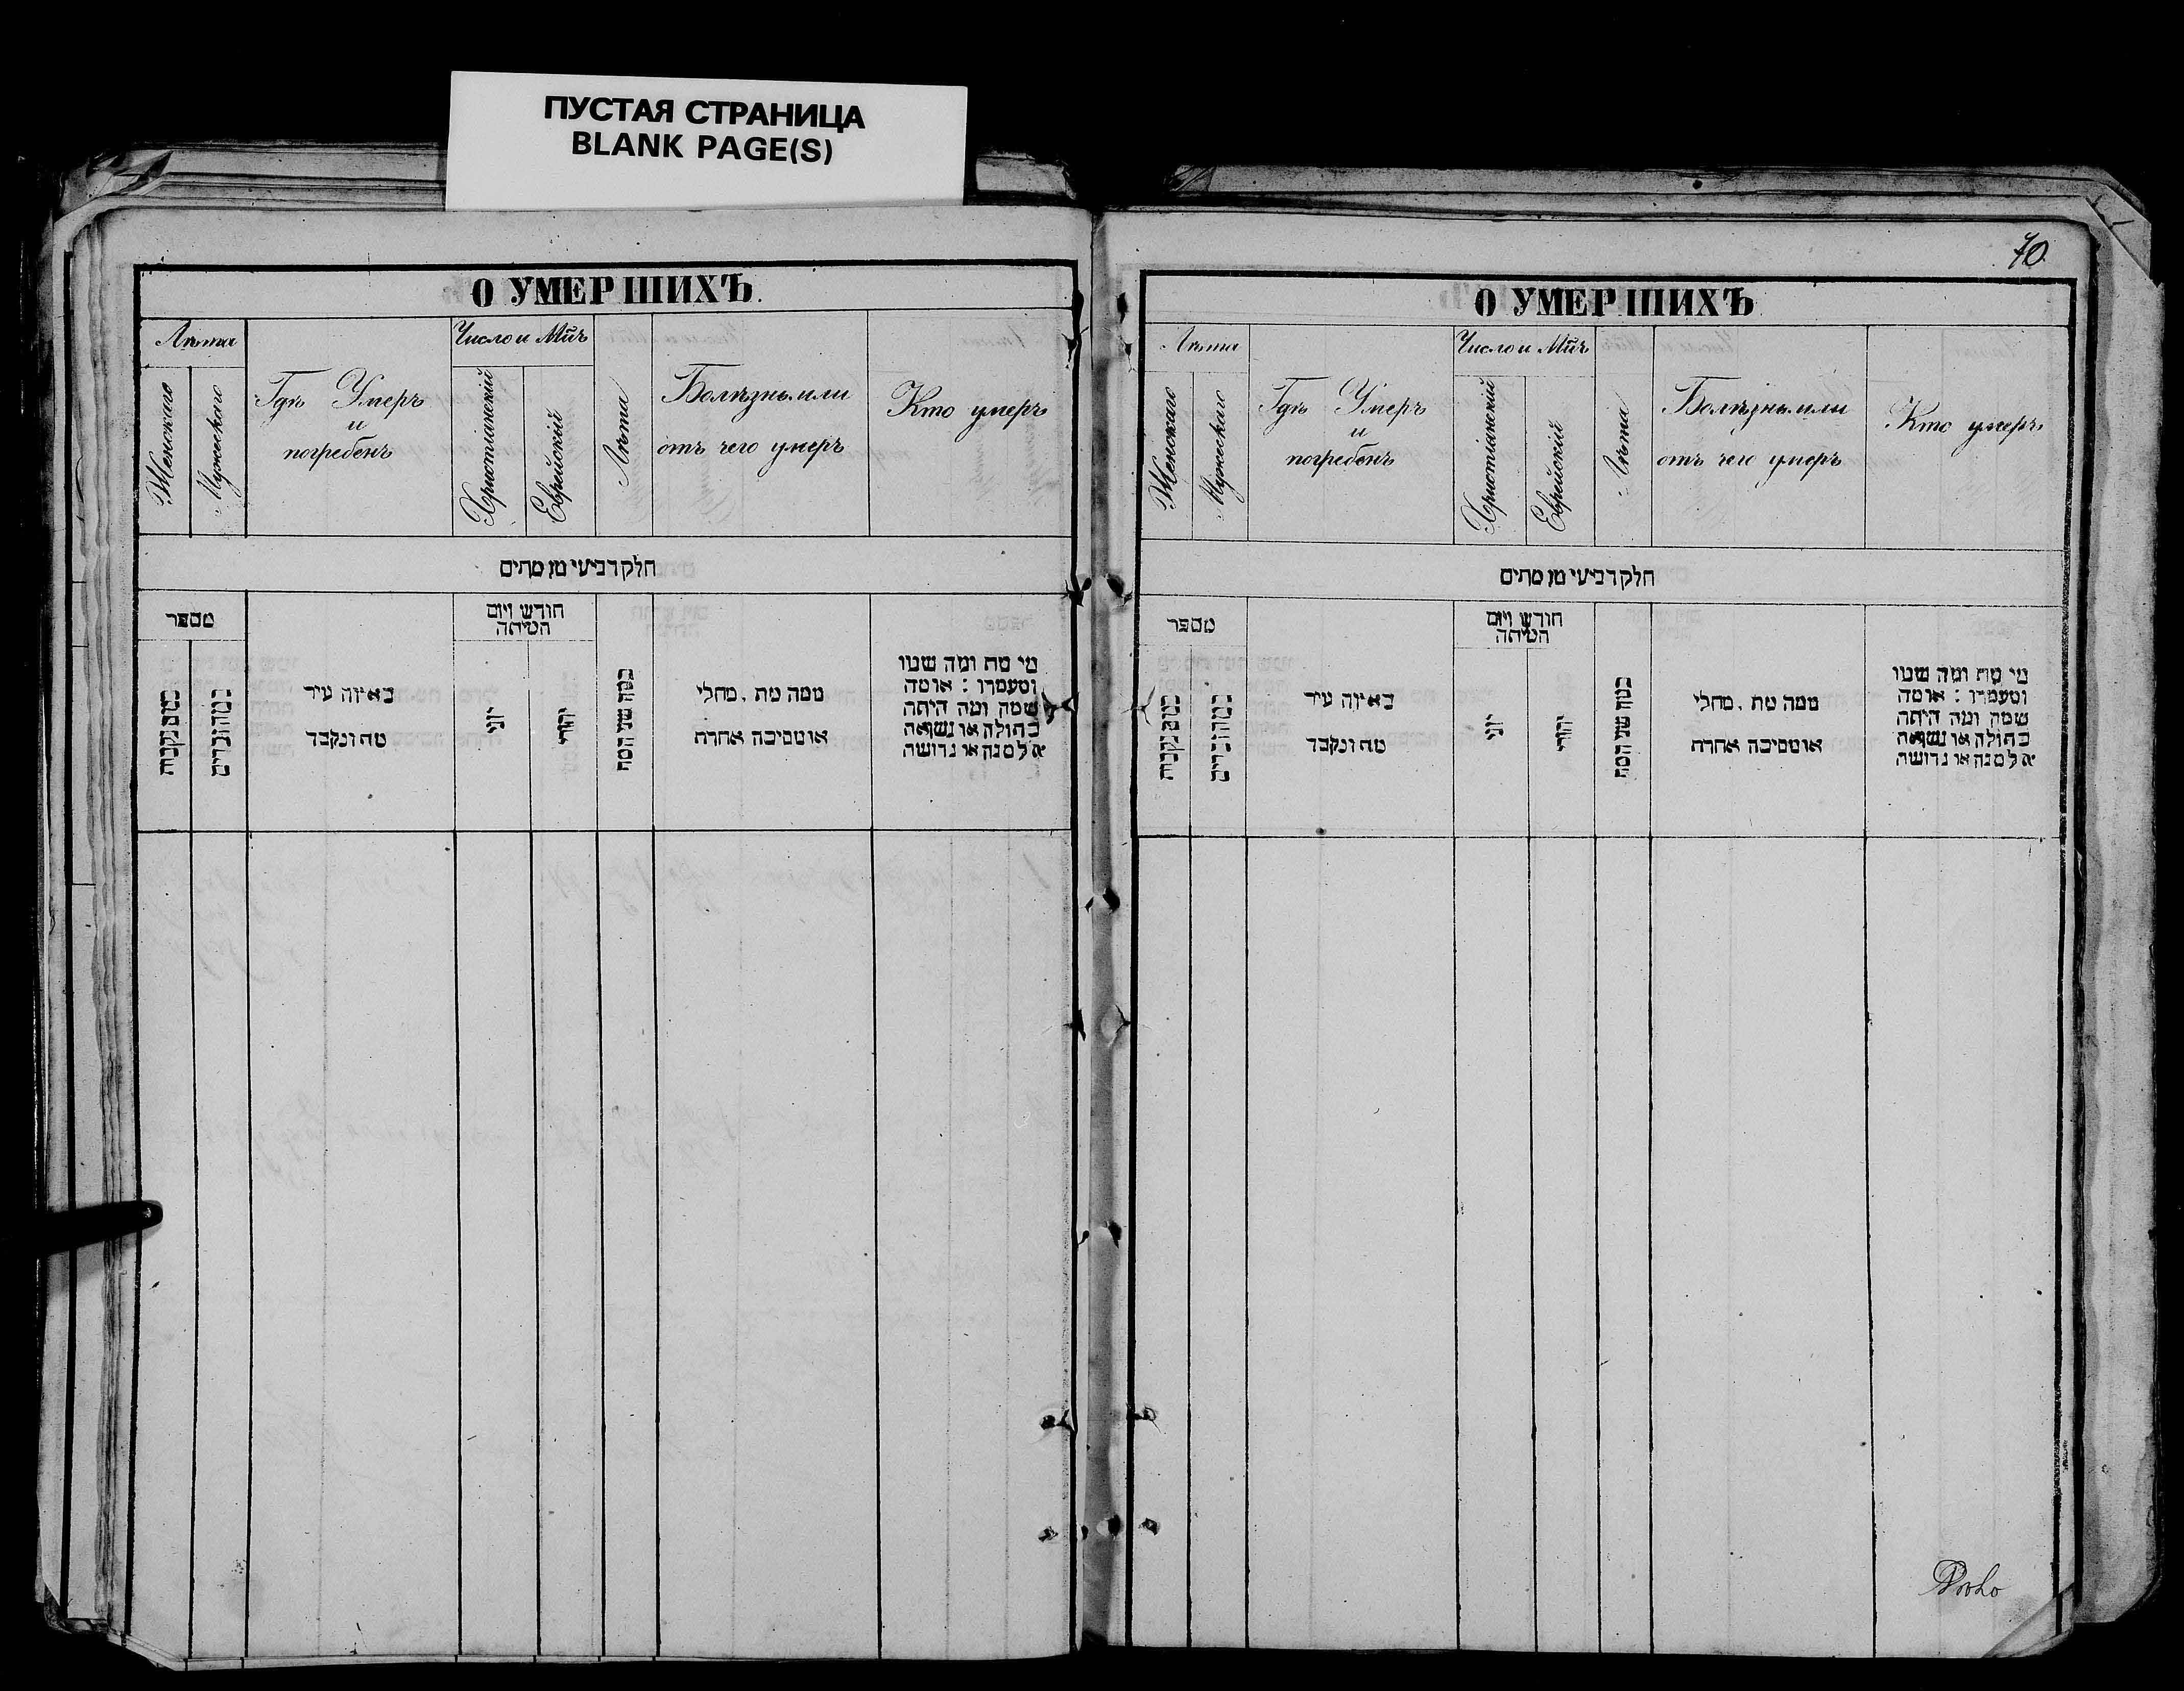 ПУСТАЯ СТРАНИЦА
BLANK PAGE(S)
О УМЕРШИХЪ.
Лѣта
Женскаго
Мужескаго
Гдѣ Умеръ
и
погребенъ
Число и Мцъ
Христіанскій
Еврейскій
Лѣта
Болѣзнь или
отъ чего умеръ
Кто умеръ
חלק רביעי מן מתים
מספר
באיזה עיר
מת ונקבר
חודש ויום
המיתה
יוני
יהודי
כמה שני המת
ממה מת . מחלי
או מסיבה אחרת
מי מת ומה שמו
ומעמדו : או מה
שמה ומה היתה
בתולה או נשואה
אלמנה או גרושה
70
О УМЕРШИХЪ
Лѣта
Женскаго
Мужескаго
Гдѣ Умеръ
и
погребенъ
Число и Мцъ
Христіанскій
Еврейскій
Лѣта
Болѣзнь или
отъ чего умеръ
Кто умеръ
חלק רביעי מן מתים
מספר
באיזה עיר
מת ונקבר
חודש ויום
המיתה
יוני
יהודי
כמה שני המת
ממה מת . מחלי
או מסיבה אחרת
מי מת ומה שמו
ומעמדו : או מה
שמה ומה היתה
בתולה או נשואה
אלמנה או גרושה